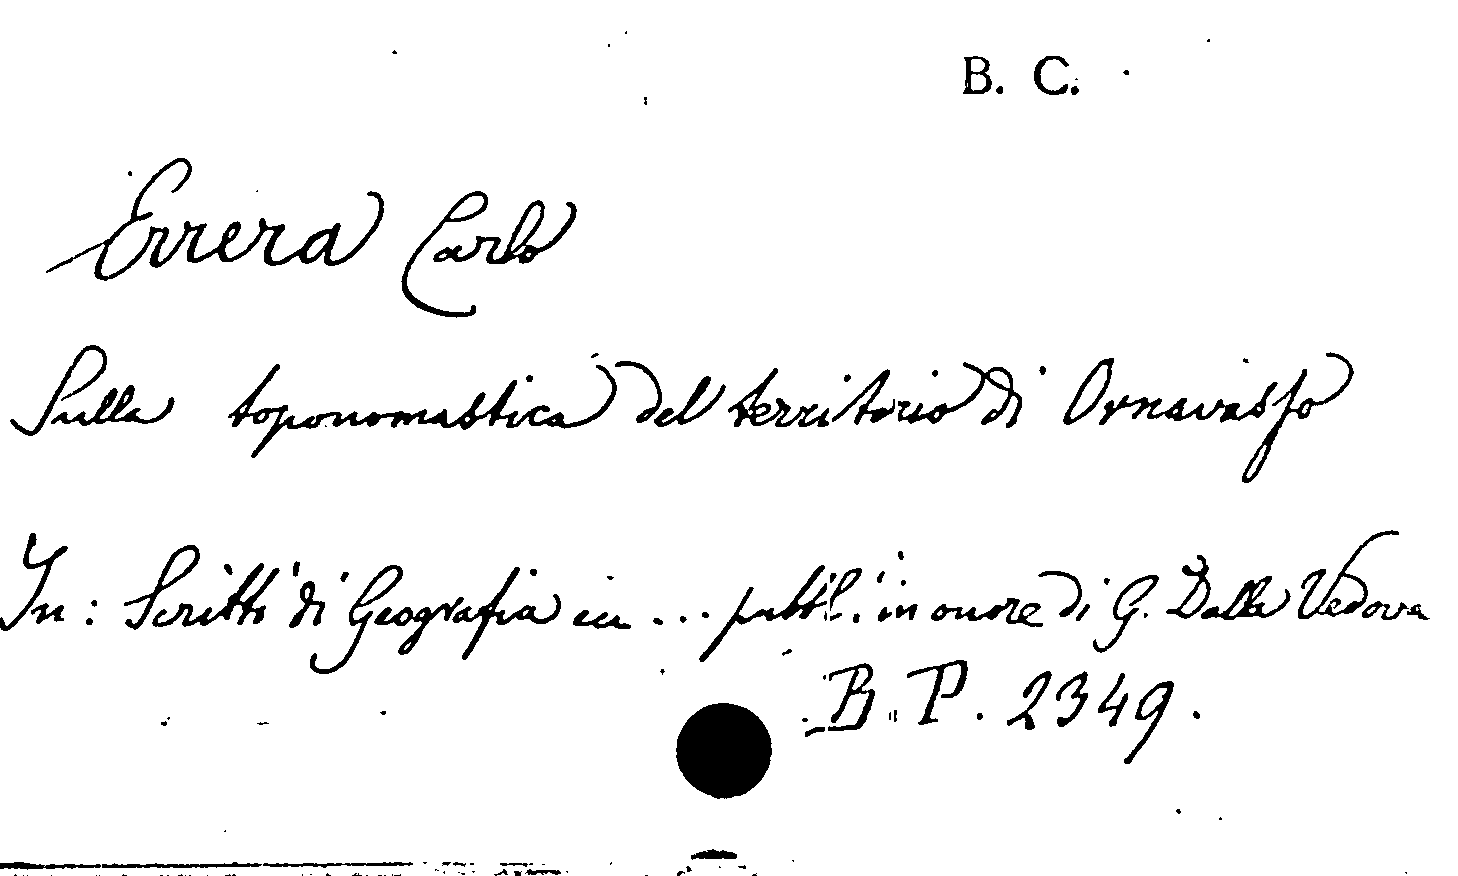 B. C.
Errera Carlo
Sulla toponomastica del territorio di Ornavasso
In: Scritti di Geografia ecc... pubbl. in onore di G. Dalla Vedova
B. P. 2349.